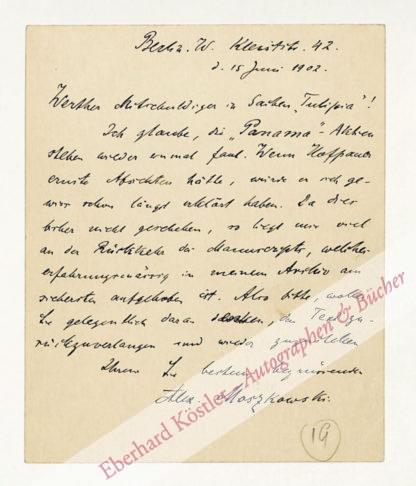 Berlin. W. Kleiststr. 42.
d. 15 Juni 1902.
Werther Mitschuldiger in Sachen "Tulipia"!
Ich glaube, die "Panama"-Aktien
stehen wieder einmal faul. Wenn Hofpauer
ernste Absichten hätte, würde er sich ge-
wiss schon längst erklärt haben. Da dies
bisher nicht geschehen, so liegt mir viel
an der Rückkehr des Manuscripts, welches
erfahrungsmässig in meinem Archiv am
sichersten aufgehoben ist. Also bitte, wollen
Sie gelegentlich daran denken, den Text zu-
rückzuverlangen und wieder zuzustellen
Ihrem Sie bestens begrüssenden
Alex. Moszkowski.
19
Eberhard Köstler Autographen & Bücher